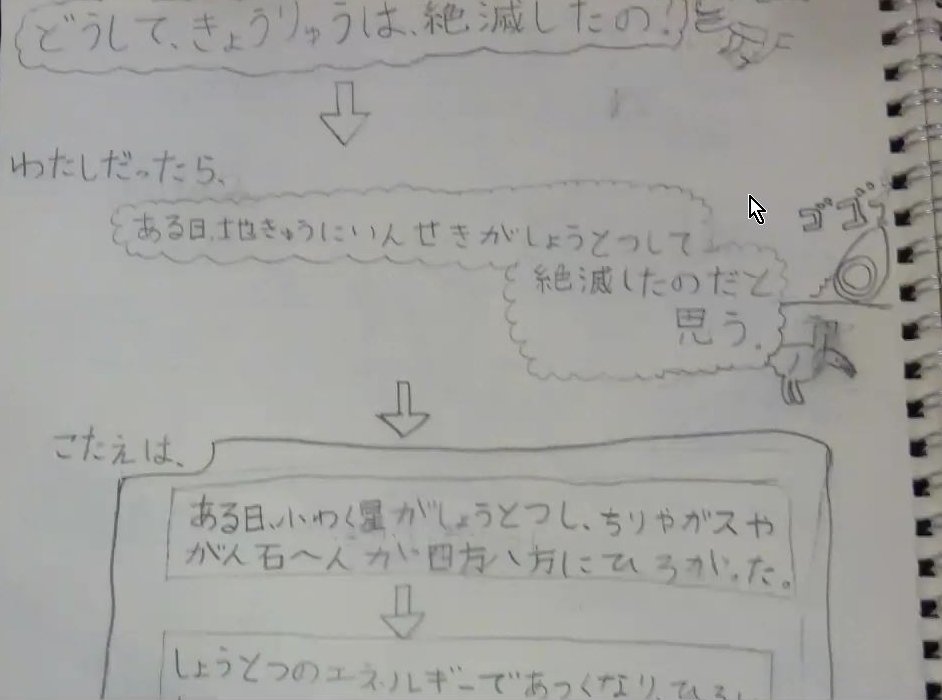 どうして、きょうりゅうは、絶滅したの!
わたしだったら、
ゴゴゴ
ある日、地きゅうにいんせきがしょうとつして
絶滅したのだと
思う。
こたえは、
ある日、小わく星がしょうとつし、ちりやガスや
がん石へんが四方八方にひろがった。
しょうとつのエネルギーであつくなり、